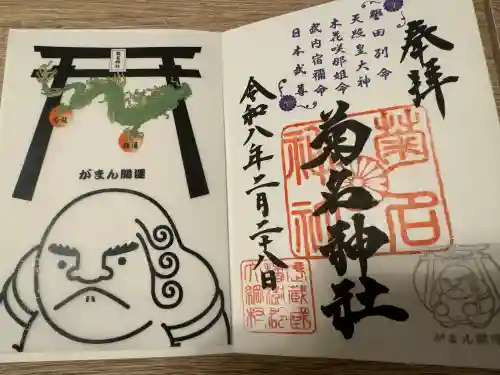 奉拝
譽田別命
天照皇大神
木花咲耶姫命
武内宿禰命
日本武尊
菊名神社
令和八年二月二十八日
菊名神社
菊名神社
がまん開運
がまん開運